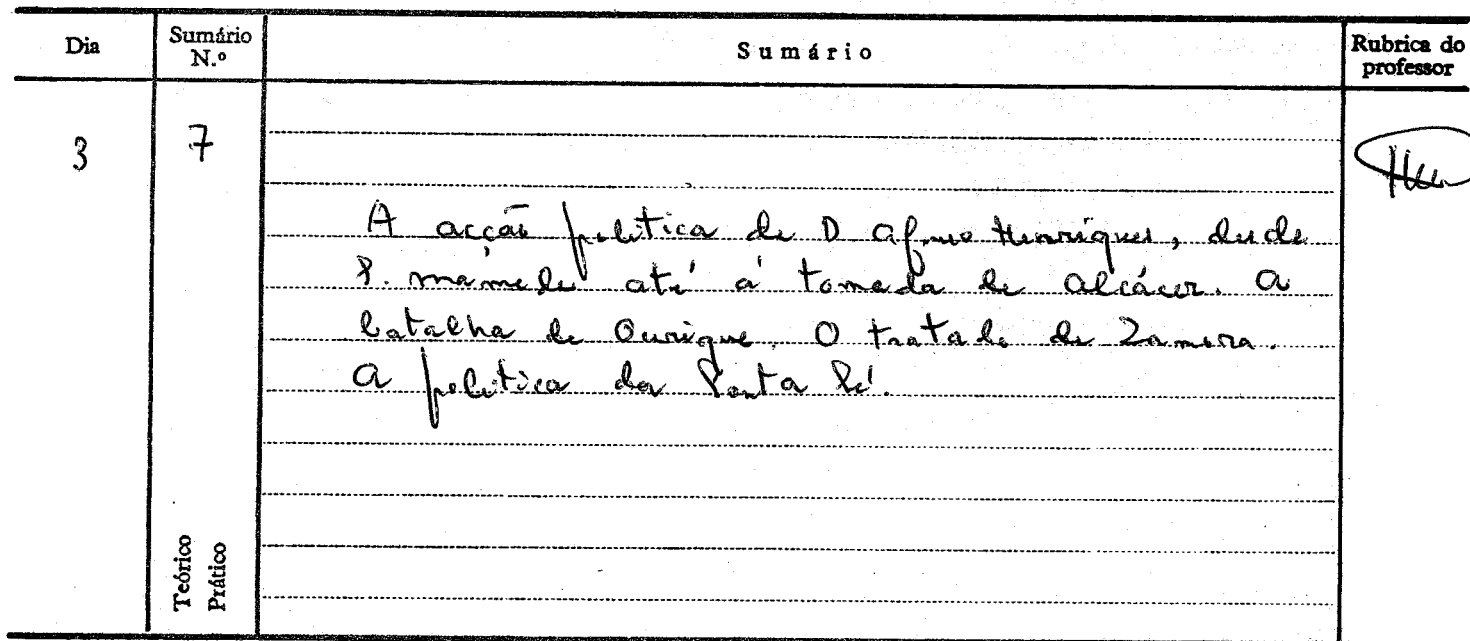 Dia
Sumário N.º
Sumário
Rubrica do professor
3
7
A acção politica de D Afonso Henriques, desde
S. mamede até á tomada de Alcácer. A
batalha de Ourique. O tratado de Zamora.
A politica da Santa Sé.
Teórico
Prático